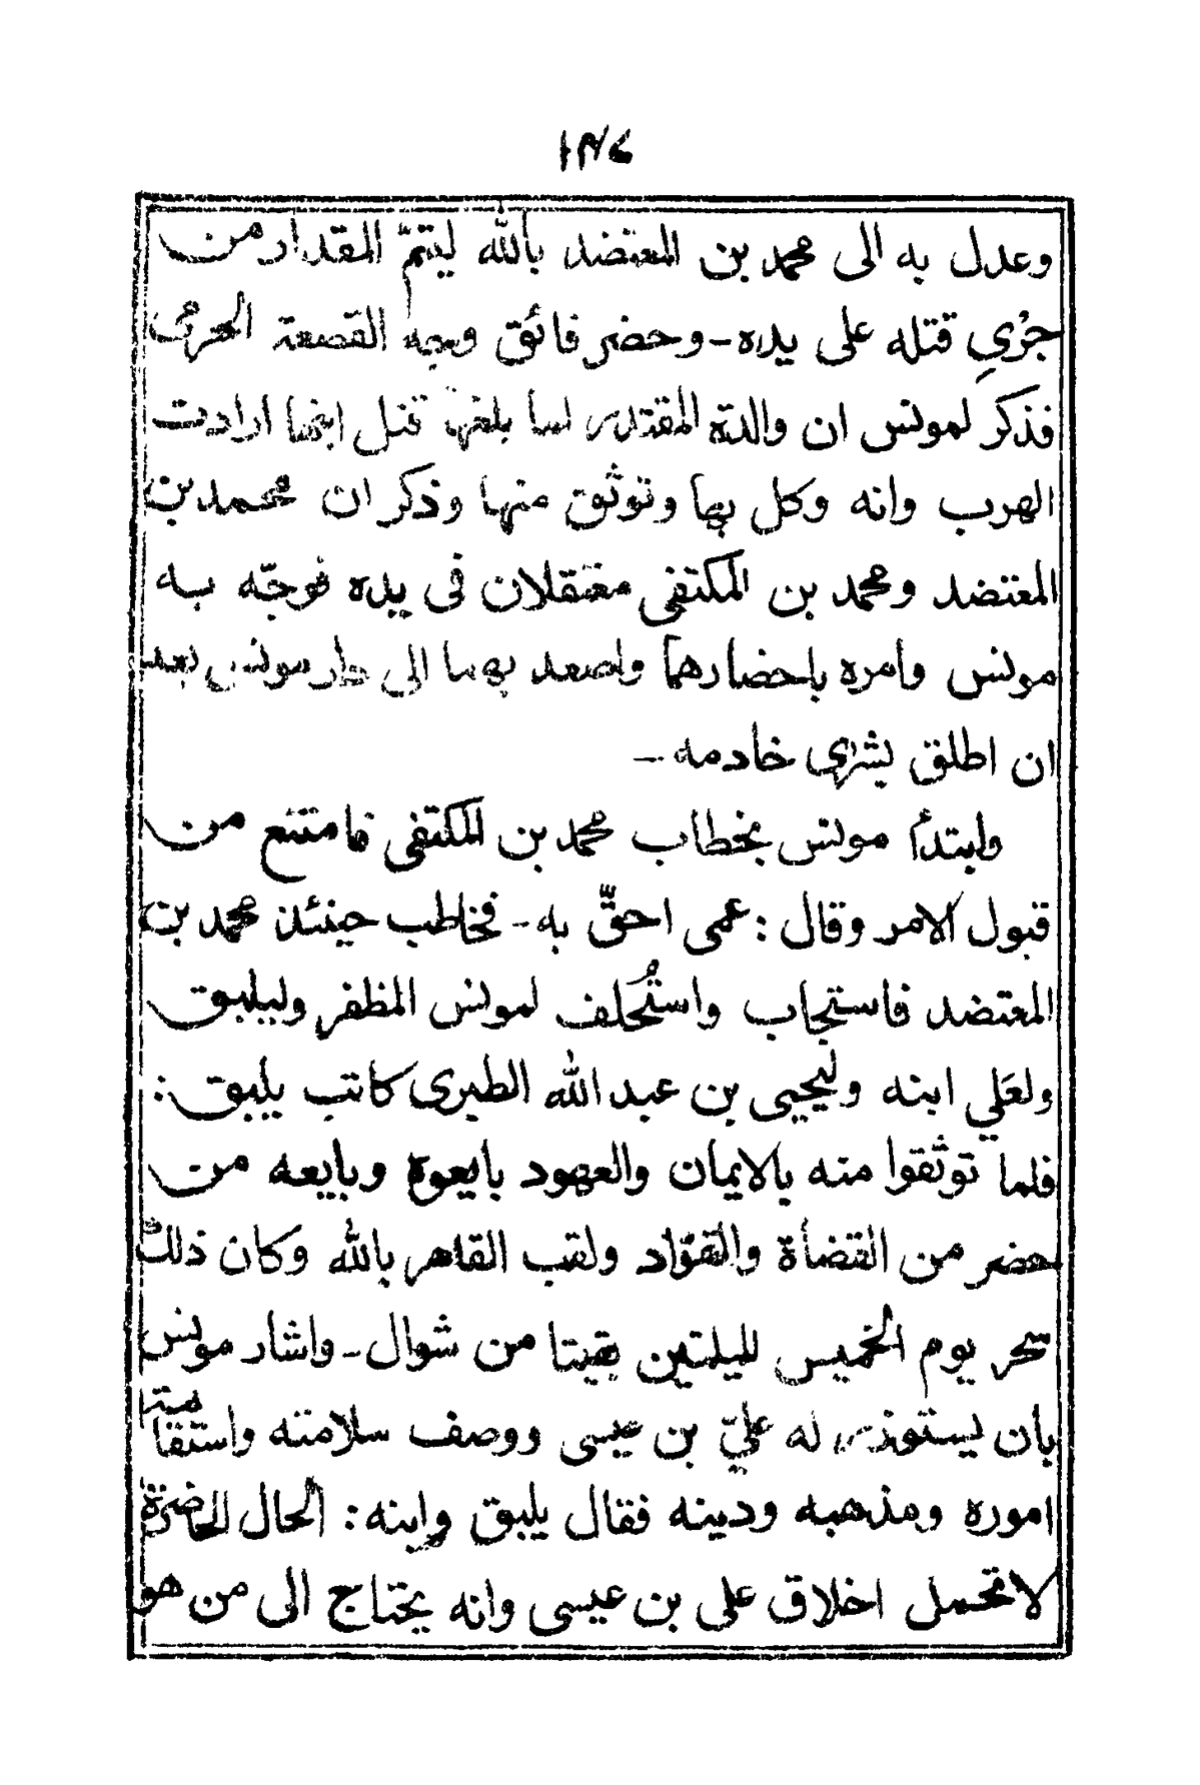 وعدل به الى محمد بن المعتضد بالله ليتمّ المقدار من
جرْي قتله على يده - وحضر فائق وجه القصعة الحرمى
فذكر لمونس ان والدة المقتدر لما بلغها قتل ابنها ارادت
الهرب وانه وكل بها وتوثق منها وذكر ان محمد بن
المعتضد ومحمد بن المكتفى معتقلان فى يده فوجّه به
مونس وامره باحضارهما واصعد بهما الى دار مونس بعد
ان اطلق بشرى خادمه -
وابتدأ مونس بخطاب محمد بن المكتفى فامتنع من
قبول الامر وقال : عمى احقّ به - فخاطب حينئذ محمد بن
المعتضد فاستجاب واستُحلف لمونس المظفر وليلبق
ولعَلي ابنه وليحيى بن عبد الله الطبرى كاتب يلبق :
فلما توثقوا منه بالايمان والعهود بايعوه وبايعه من
حضر من القضاة والقوّاد ولقب القاهر بالله وكان ذلك
سحر يوم الخميس لليلتين بقيتا من شوال - واشار مونس
بأن يستوذر له عليّ بن عيسى ووصف سلامته واستقامة
اموره ومذهبه ودينه فقال يلبق وابنه : الحال الحاضرة
لا تحمل اخلاق على بن عيسى وانه يحتاج الى من هو